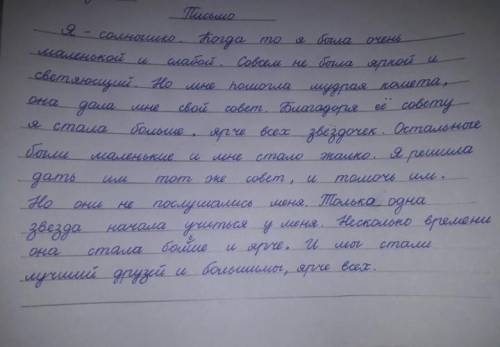 Письмо
Я - солнышко. Когда то я была очень
маленькой и слабой. Совсем не была яркой и
светяющий. Но мне помогла мудрая комета,
она дала мне свой совет. Благодоря её совету
я стала больше, ярче всех звёздочек. Остальные
были маленькие и мне стало жалко. Я решила
дать им тот же совет, и помочь им.
Но они не послушались меня. Только одна
звезда начала учиться у меня. Несколько времени
она стала больше и ярче. И мы стали
лучший друзей и большимы, ярче всех.